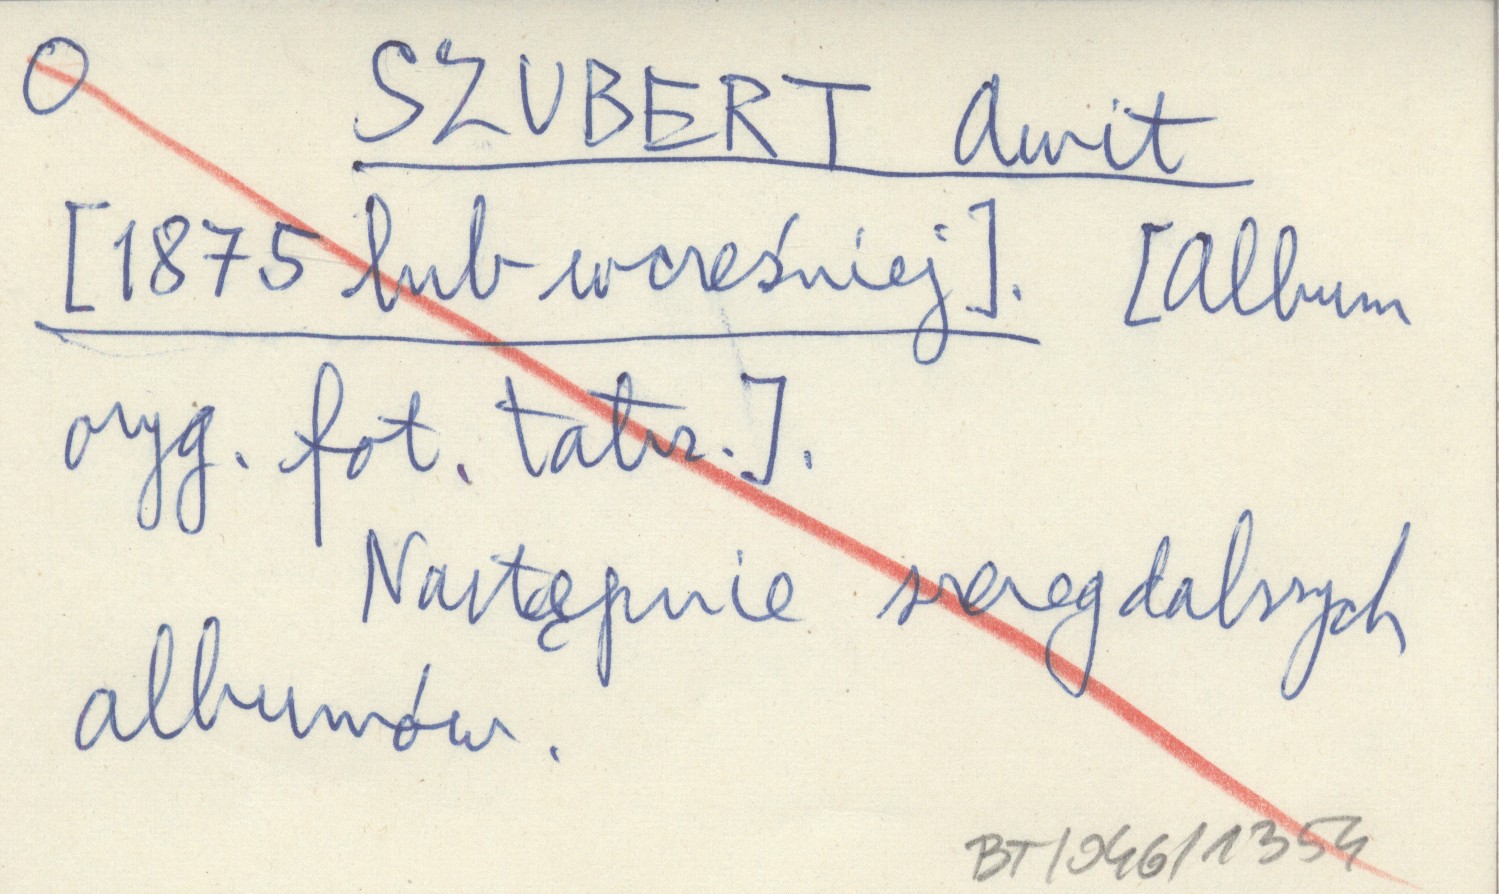 O SZUBERT Awit
[1875 lub wcześniej]. [Album
oryg. fot. tatr.].
Następnie szereg dalszych
albumów.
BT/046/1354